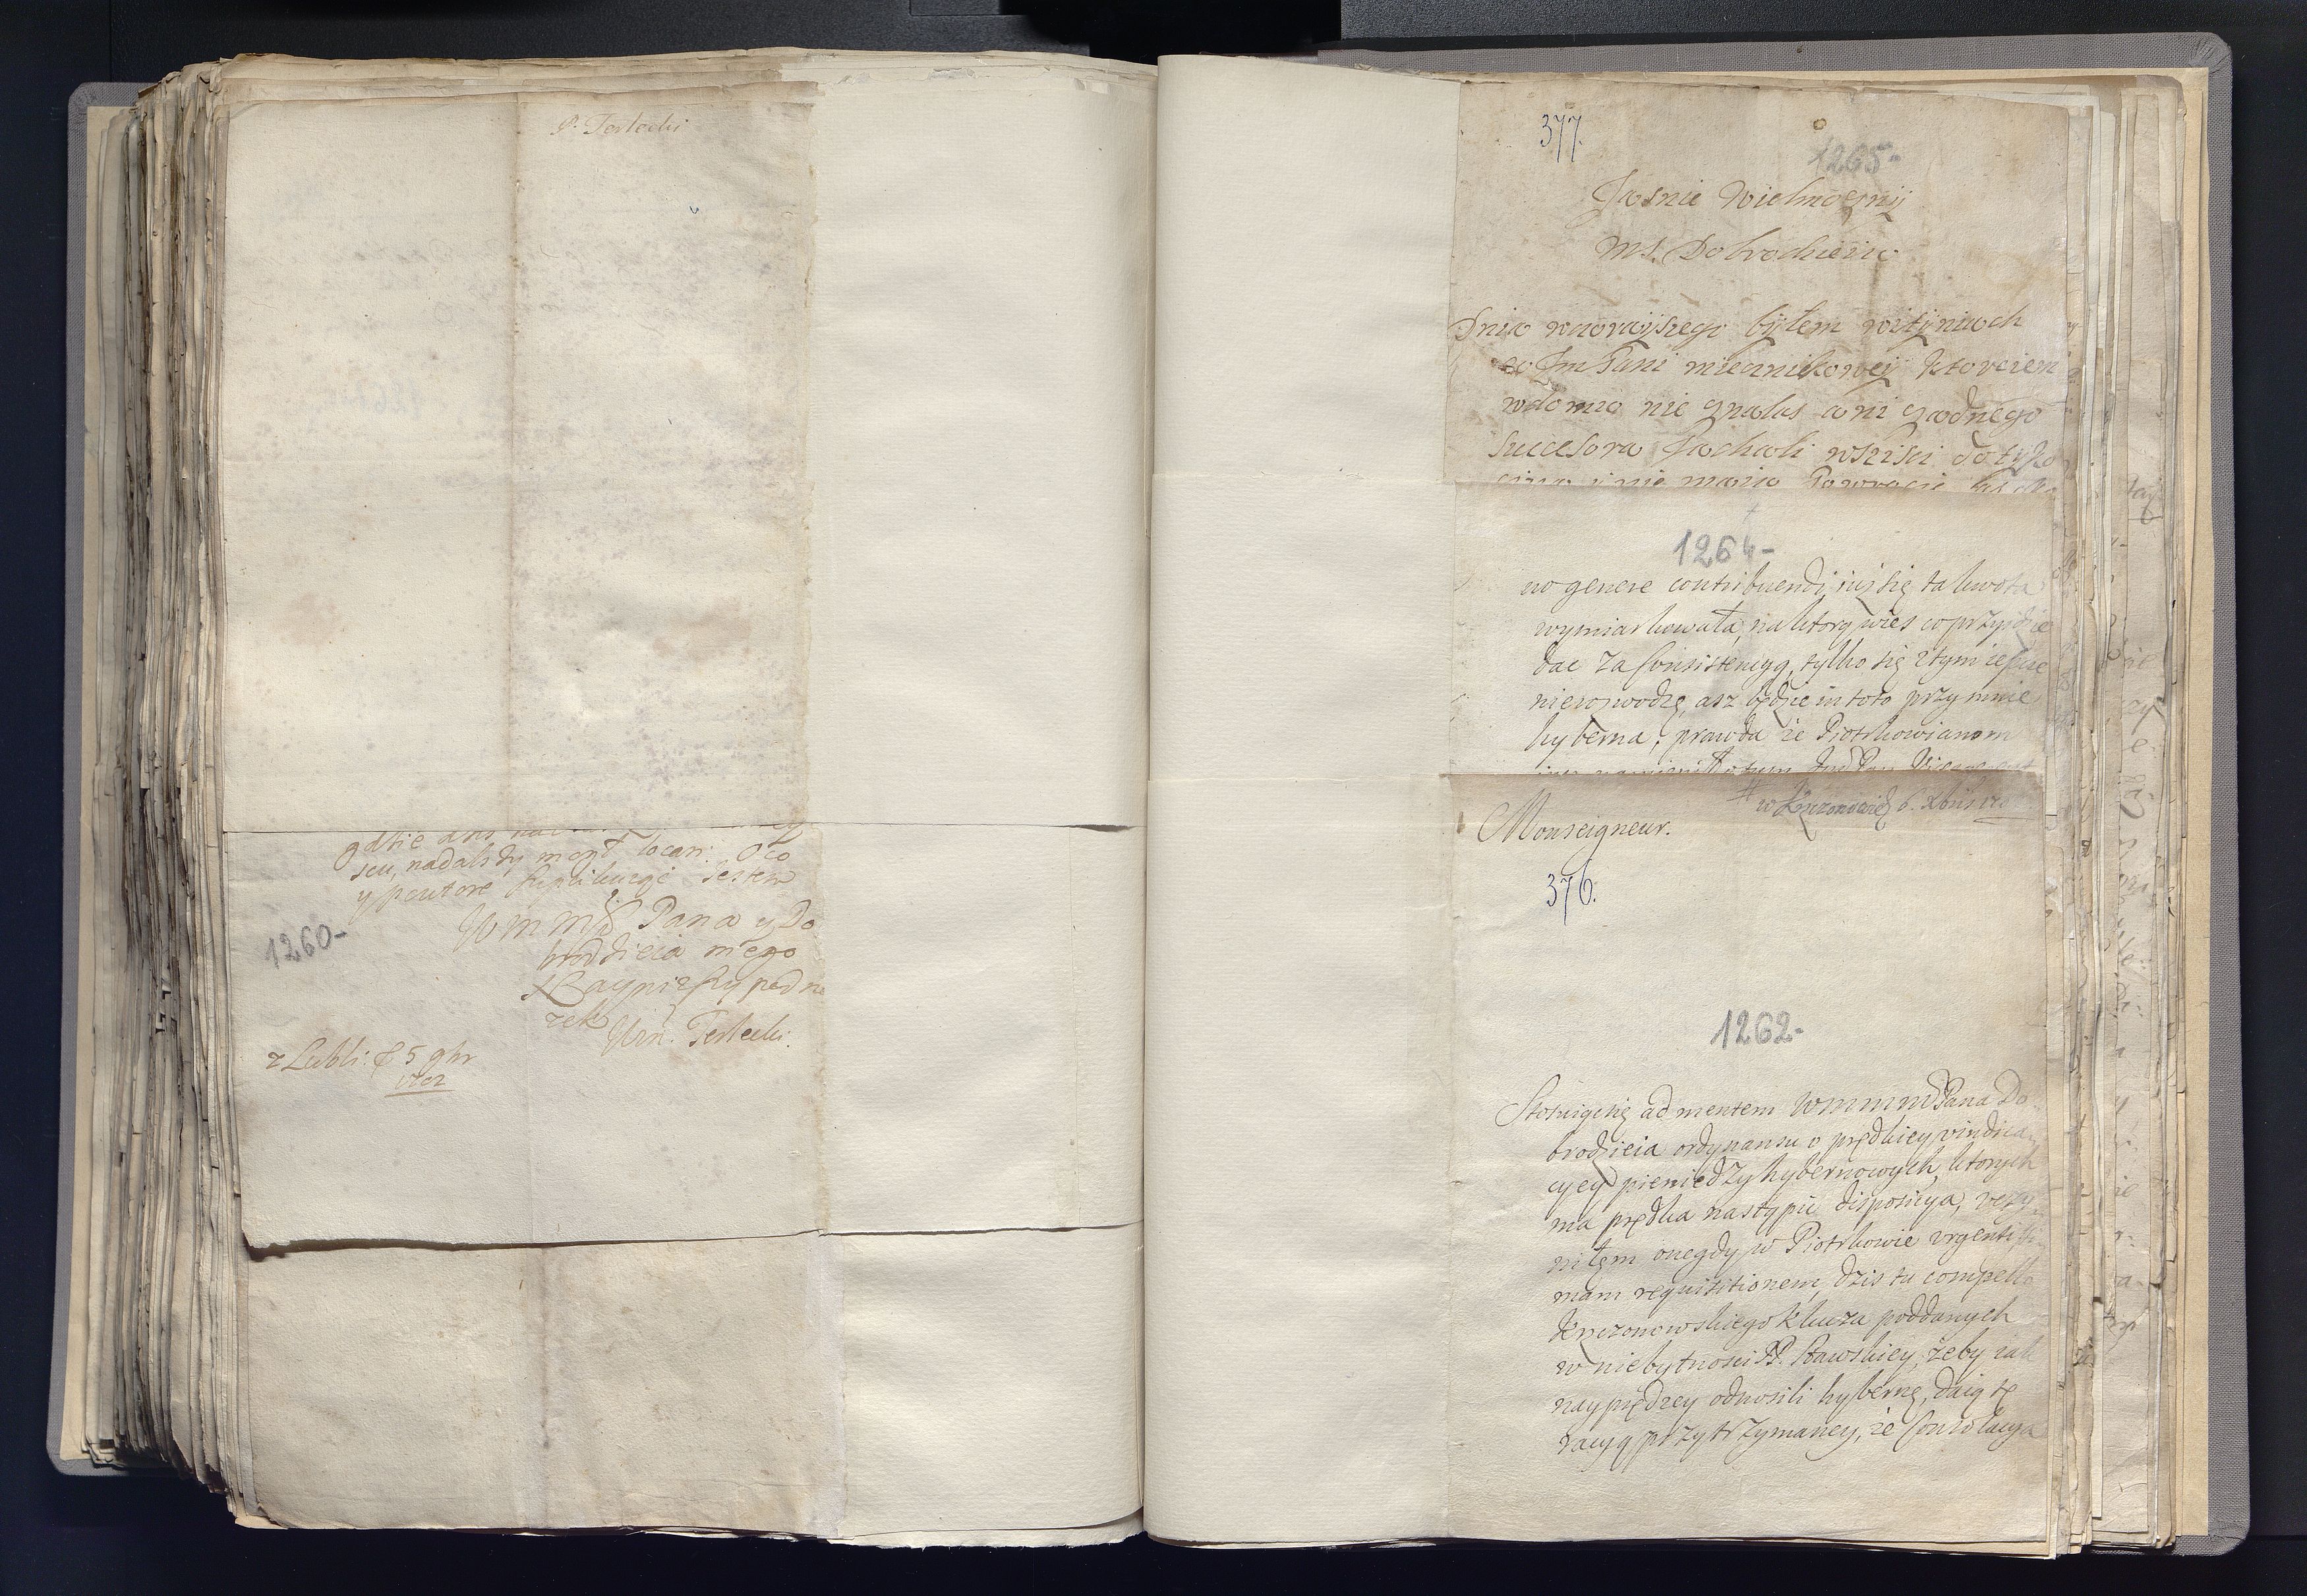 P. Terlecki
gdzie
scu, nadals dy mogł locari. Oco
y powtore suplikuegę Jestem
W m m P Pana y Do
brodzieia mego
Naynizszy pod no
zek
Urn. Terlecki.
1260-
z Lubli: d 5 9br
1702
377.
1265-
Jasnie Wielmoznij
M. Dobrodzieiu
Dnia wczorajszego byłem witÿniach
Im Pani miecznikowej ktorciem
wdomu nie znalas ani zadnego
Sucesora Jachali wszisci do tyko
nie maia
1264-
no genere contribuendi, iuż się ta kwota
wymiarkowała, na ktorą wies co przyidzie
dac za Consistencyą, tylko się ztym iescze
nierozwodzę, asz będzie in toto przy mnie
hyberna; prawda że Piotrkowianom
w Krzczonowie 6. Xbris
Monseigneur.
376.
1262-
Stosuiąc się ad mentem WMMMPana Do
brodzieia ordynansu o prędkiey vindica
cyey pieniedzy hybernowych, ktorych
ma prędka nastąpić dispozicya, uczy
niłem onegdy w Piotrkowie urgentissi
mam requisitionem, dzis tu compello
Krzczonowskiego klucza poddanych
w niebytnosci P. Stawskiey, żeby iak
nayprędzey odnosili hybernę, daią tę
racyą przytrzymaney, że Consolacya